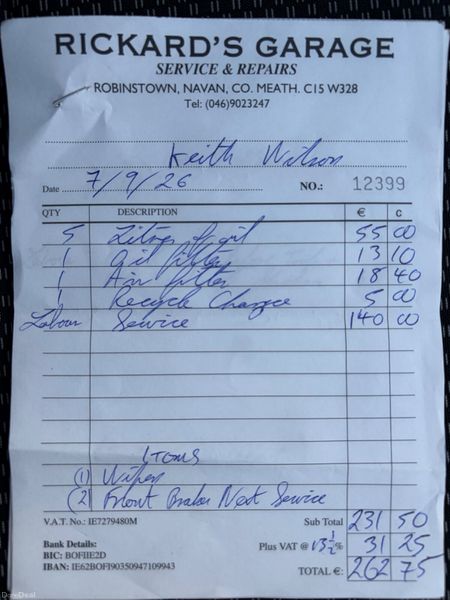 RICKARD'S GARAGE
SERVICE & REPAIRS
ROBINSTOWN, NAVAN, CO. MEATH. C15 W328
Tel: (046)9023247
Keith Wilson
Date 7/9/26 NO.: 12399
QTY DESCRIPTION € c
5 Litres of oil 55 00
1 Oil filter 13 10
1 Air filter 18 40
1 Recycle Charge 5 00
Labour Service 140 00
ITOMS
(1) Wiper
(2) Front Brakes Next Service
V.A.T. No.: IE7279480M Sub Total 231 50
Bank Details: Plus VAT @ 13½% 31 25
BIC: BOFIIE2D
IBAN: IE62BOFI90350947109943 TOTAL €: 262 75
DoneDeal